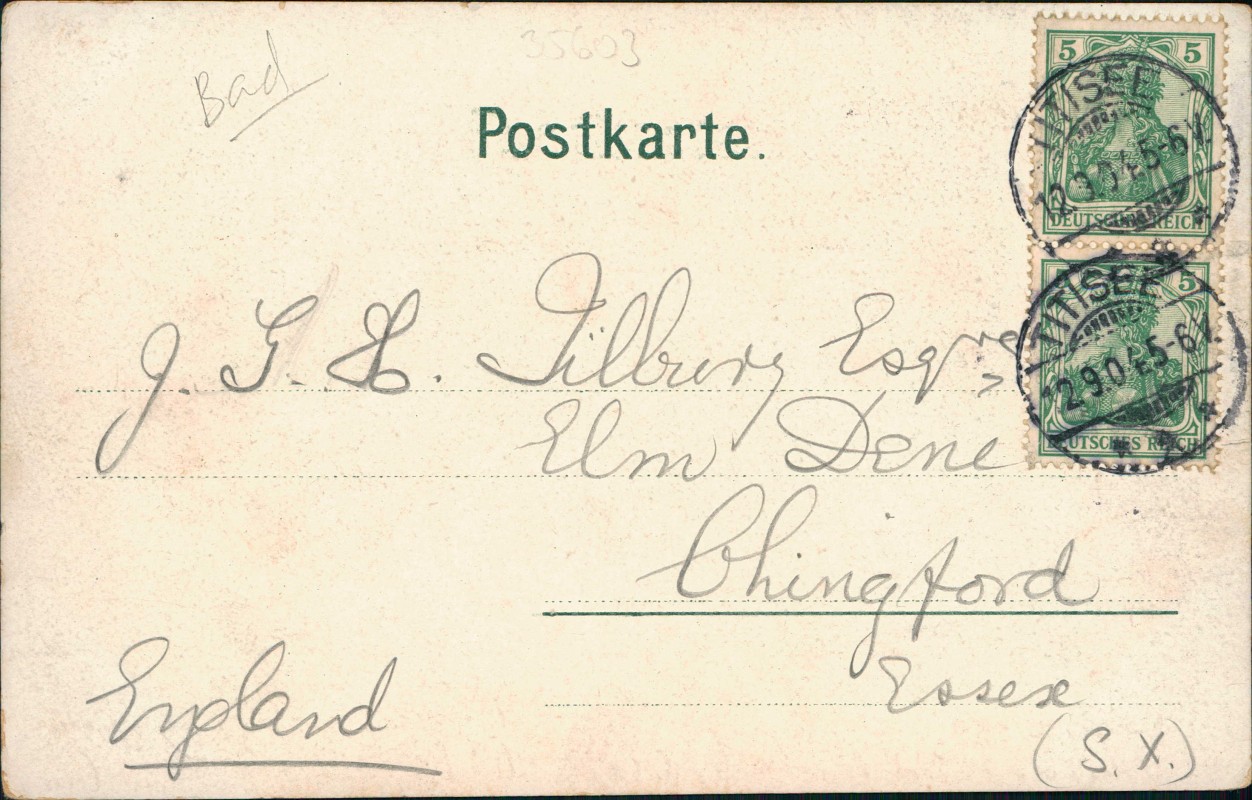 35603
Bad
Postkarte.
5 5
TITISEE
12.9.04.5-6V.
DEUTSCHES REICH
5
TITISEE
12.9.04.5-6V.
DEUTSCHES REICH
J. G. H. Tilbury Esqre
Elm Dene
Chingford
Essex
England
(S. X.)